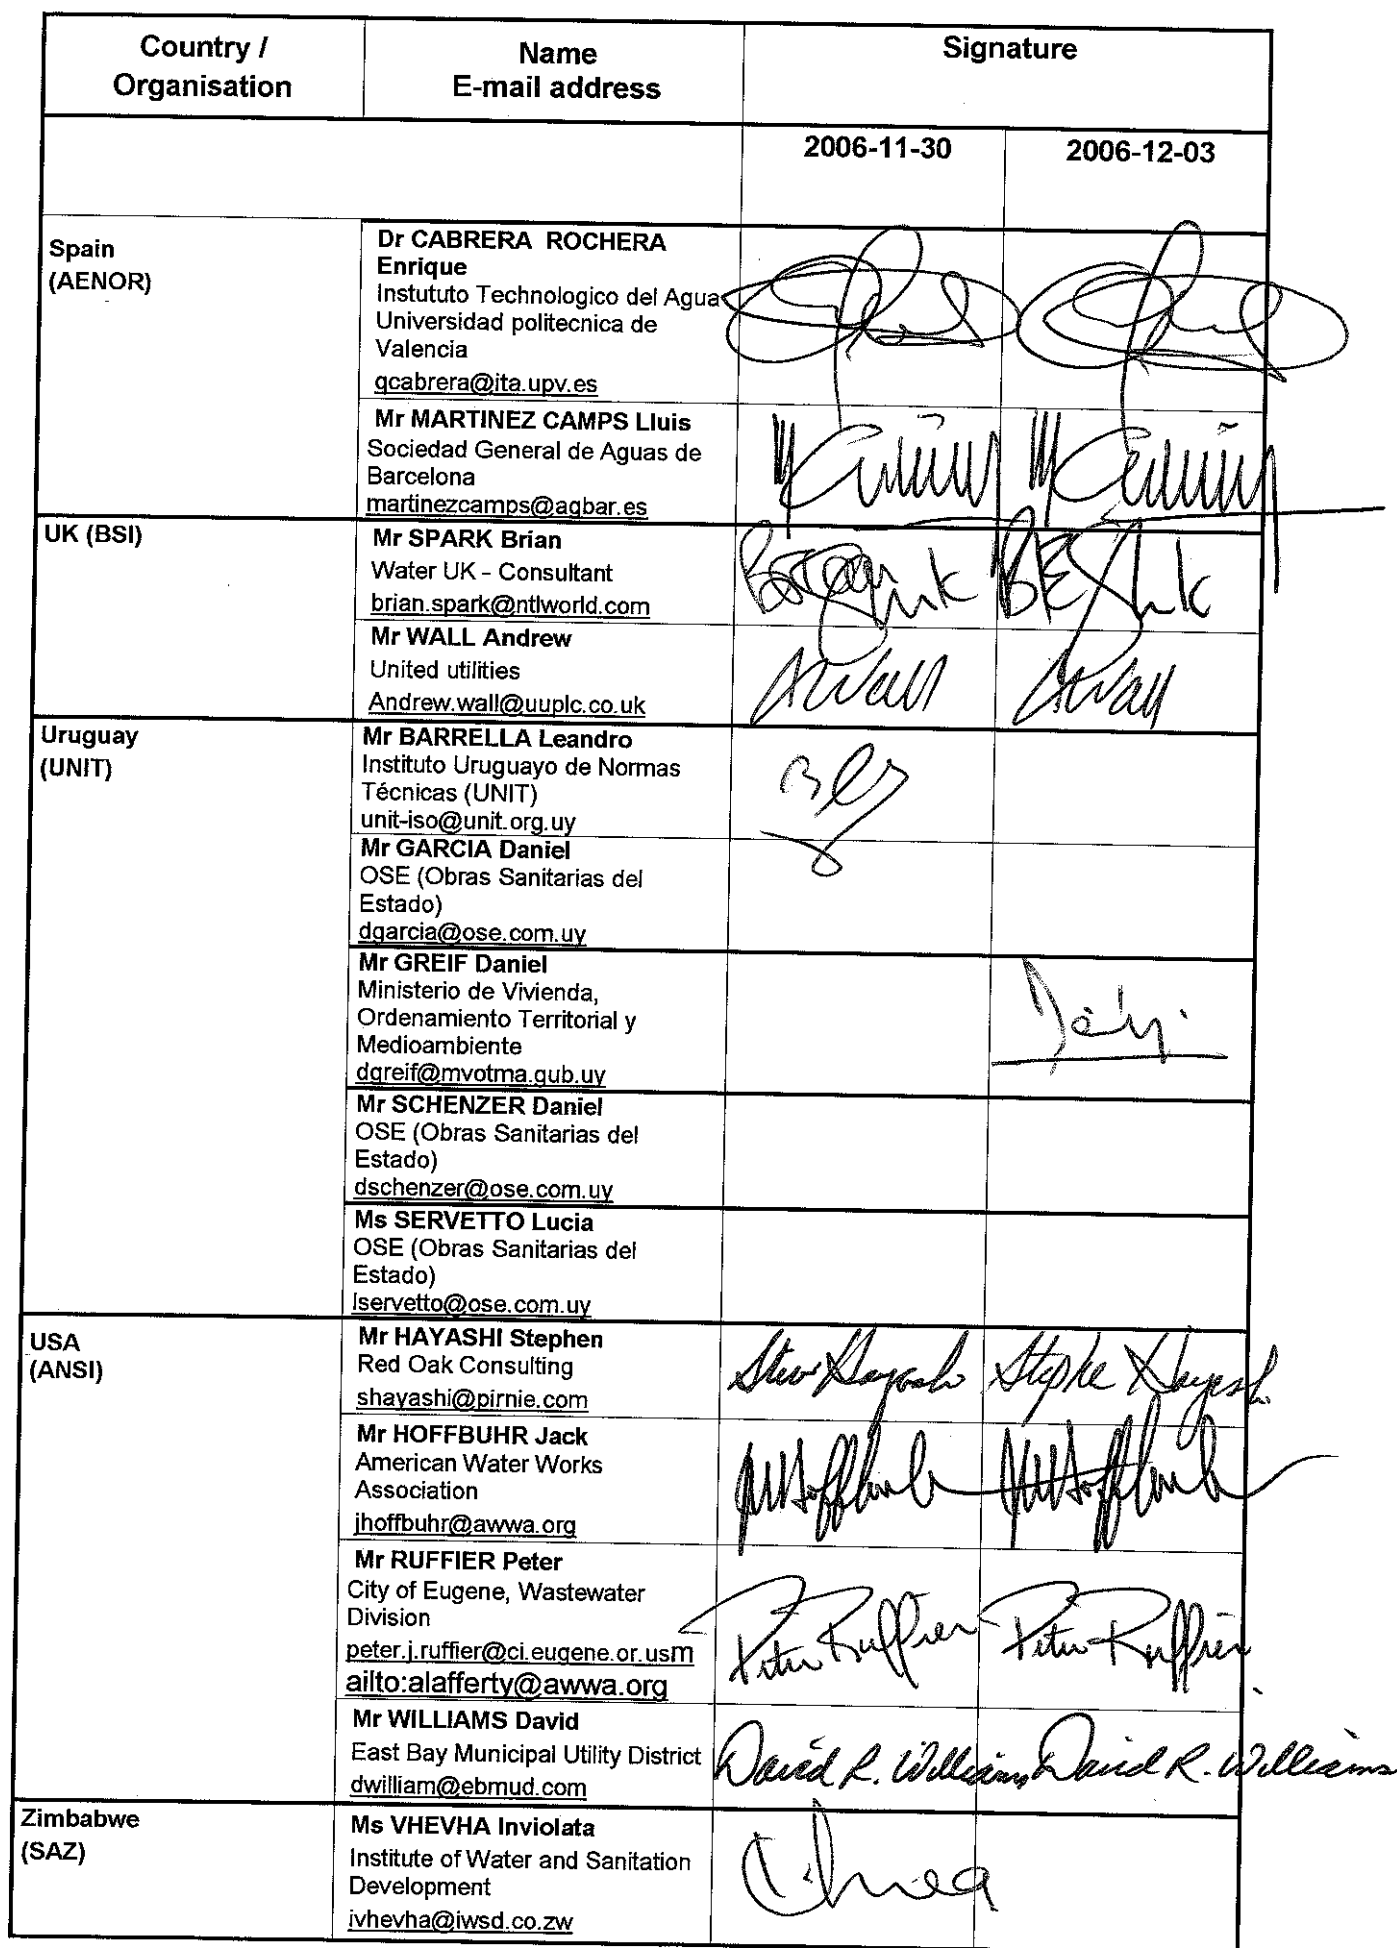 Country /
Organisation
Name
E-mail address
Signature
2006-11-30
2006-12-03
Spain
(AENOR)
Dr CABRERA ROCHERA
Enrique
Instututo Technologico del Agua
Universidad politecnica de
Valencia
qcabrera@ita.upv.es
Mr MARTINEZ CAMPS Lluis
Sociedad General de Aguas de
Barcelona
martinezcamps@agbar.es
UK (BSI)
Mr SPARK Brian
Water UK - Consultant
brian.spark@ntlworld.com
Mr WALL Andrew
United utilities
Andrew.wall@uuplc.co.uk
AWall AWall
Uruguay
(UNIT)
Mr BARRELLA Leandro
Instituto Uruguayo de Normas
Técnicas (UNIT)
unit-iso@unit.org.uy
Mr GARCIA Daniel
OSE (Obras Sanitarias del
Estado)
dgarcia@ose.com.uy
Mr GREIF Daniel
Ministerio de Vivienda,
Ordenamiento Territorial y
Medioambiente
dgreif@mvotma.gub.uy
Mr SCHENZER Daniel
OSE (Obras Sanitarias del
Estado)
dschenzer@ose.com.uy
Ms SERVETTO Lucia
OSE (Obras Sanitarias del
Estado)
lservetto@ose.com.uy
USA
(ANSI)
Mr HAYASHI Stephen
Red Oak Consulting
shayashi@pirnie.com
Steve Hayashi
Mr HOFFBUHR Jack
American Water Works
Association
jhoffbuhr@awwa.org
Mr RUFFIER Peter
City of Eugene, Wastewater
Division
peter.j.ruffier@ci.eugene.or.usm
ailto:alafferty@awwa.org
Peter Ruffier Peter Ruffier
Mr WILLIAMS David
East Bay Municipal Utility District
dwilliam@ebmud.com
David R. Williams David R. Williams
Zimbabwe
(SAZ)
Ms VHEVHA Inviolata
Institute of Water and Sanitation
Development
ivhevha@iwsd.co.zw